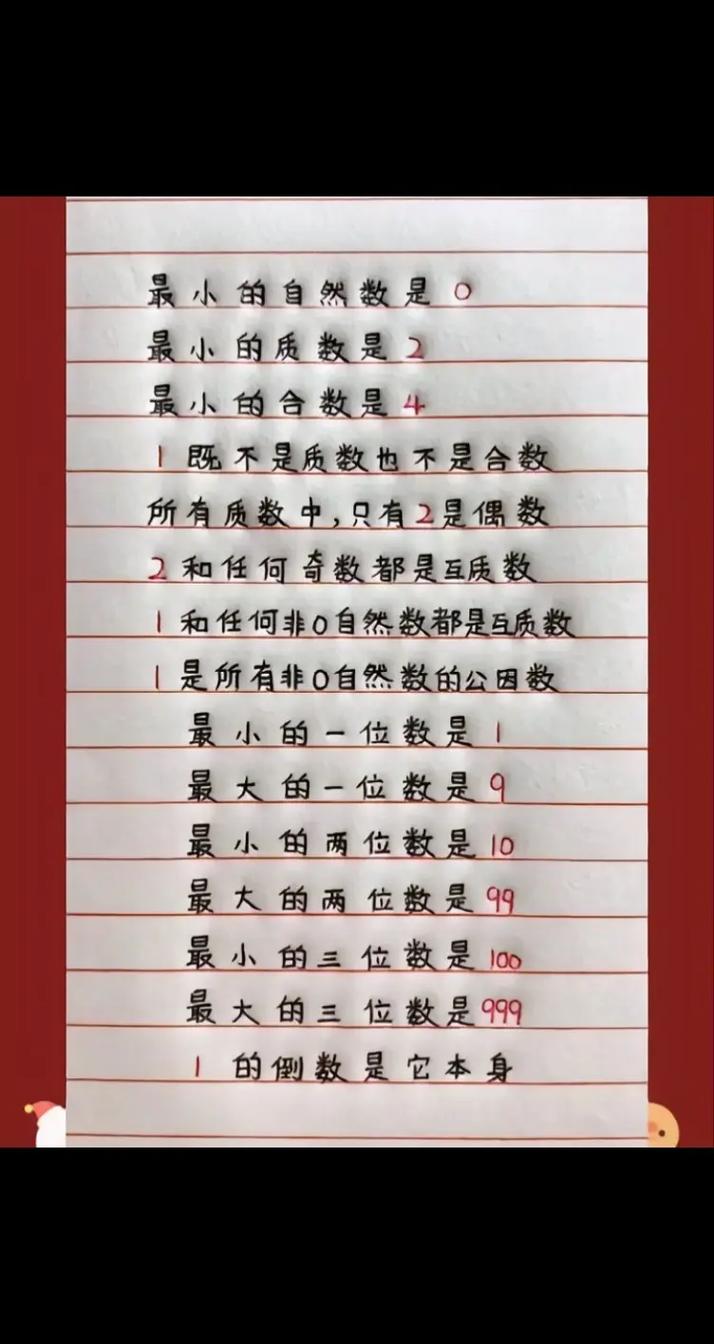 最小的自然数是0
最小的质数是2
最小的合数是4
1既不是质数也不是合数
所有质数中,只有2是偶数
2和任何奇数都是互质数
1和任何非0自然数都是互质数
1是所有非0自然数的公因数
最小的一位数是1
最大的一位数是9
最小的两位数是10
最大的两位数是99
最小的三位数是100
最大的三位数是999
1的倒数是它本身